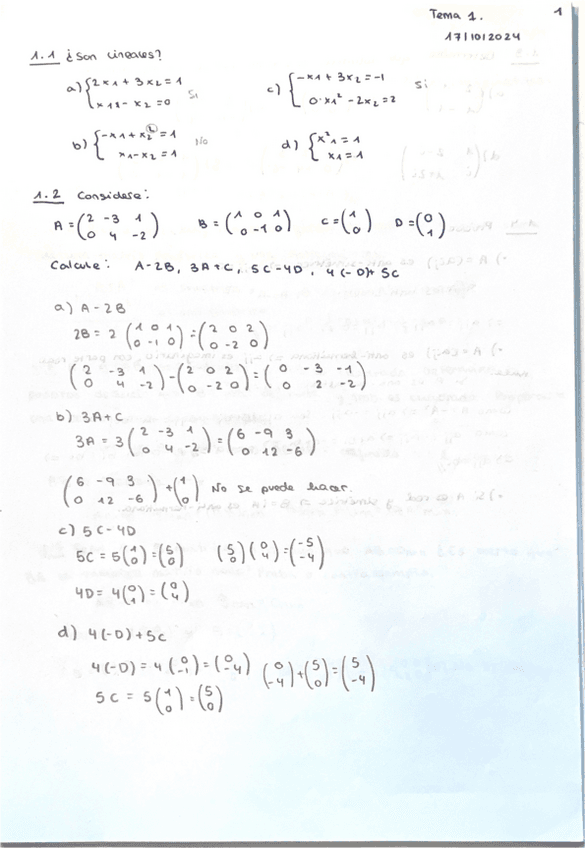 Tema 1. 1
17/10/2024
1.1 ¿Son lineales?
a) {2x1 + 3x2 = 1
x1 - x2 = 0 Si
c) {-x1 + 3x2 = -1
0·x1² - 2x2 = 2 Si
b) {-x1 + x2² = 1
x1 - x2 = 1 No
d) {x²1 = 1
x1 = 1
1.2 Considere:
A = (2 -3 1
0 4 -2) B = (1 0 1
0 -1 0) C = (1
0) D = (0
1)
Calcule: A-2B, 3A+C, 5C-4D, 4(-D)+5C
a) A-2B
2B = 2 (1 0 1
0 -1 0) = (2 0 2
0 -2 0)
(2 -3 1
0 4 -2) - (2 0 2
0 -2 0) = (0 -3 -1
0 2 -2)
b) 3A+C
3A = 3 (2 -3 1
0 4 -2) = (6 -9 3
0 12 -6)
(6 -9 3
0 12 -6) + (1
0) No se puede hacer.
c) 5C-4D
5C = 5 (1
0) = (5
0) (5
0) (0
4) = (-5
-4)
4D = 4 (0
1) = (0
4)
d) 4(-D)+5C
4(-D) = 4 (0
-1) = (0
-4) (0
-4) + (5
0) = (5
-4)
5C = 5 (1
0) = (5
0)